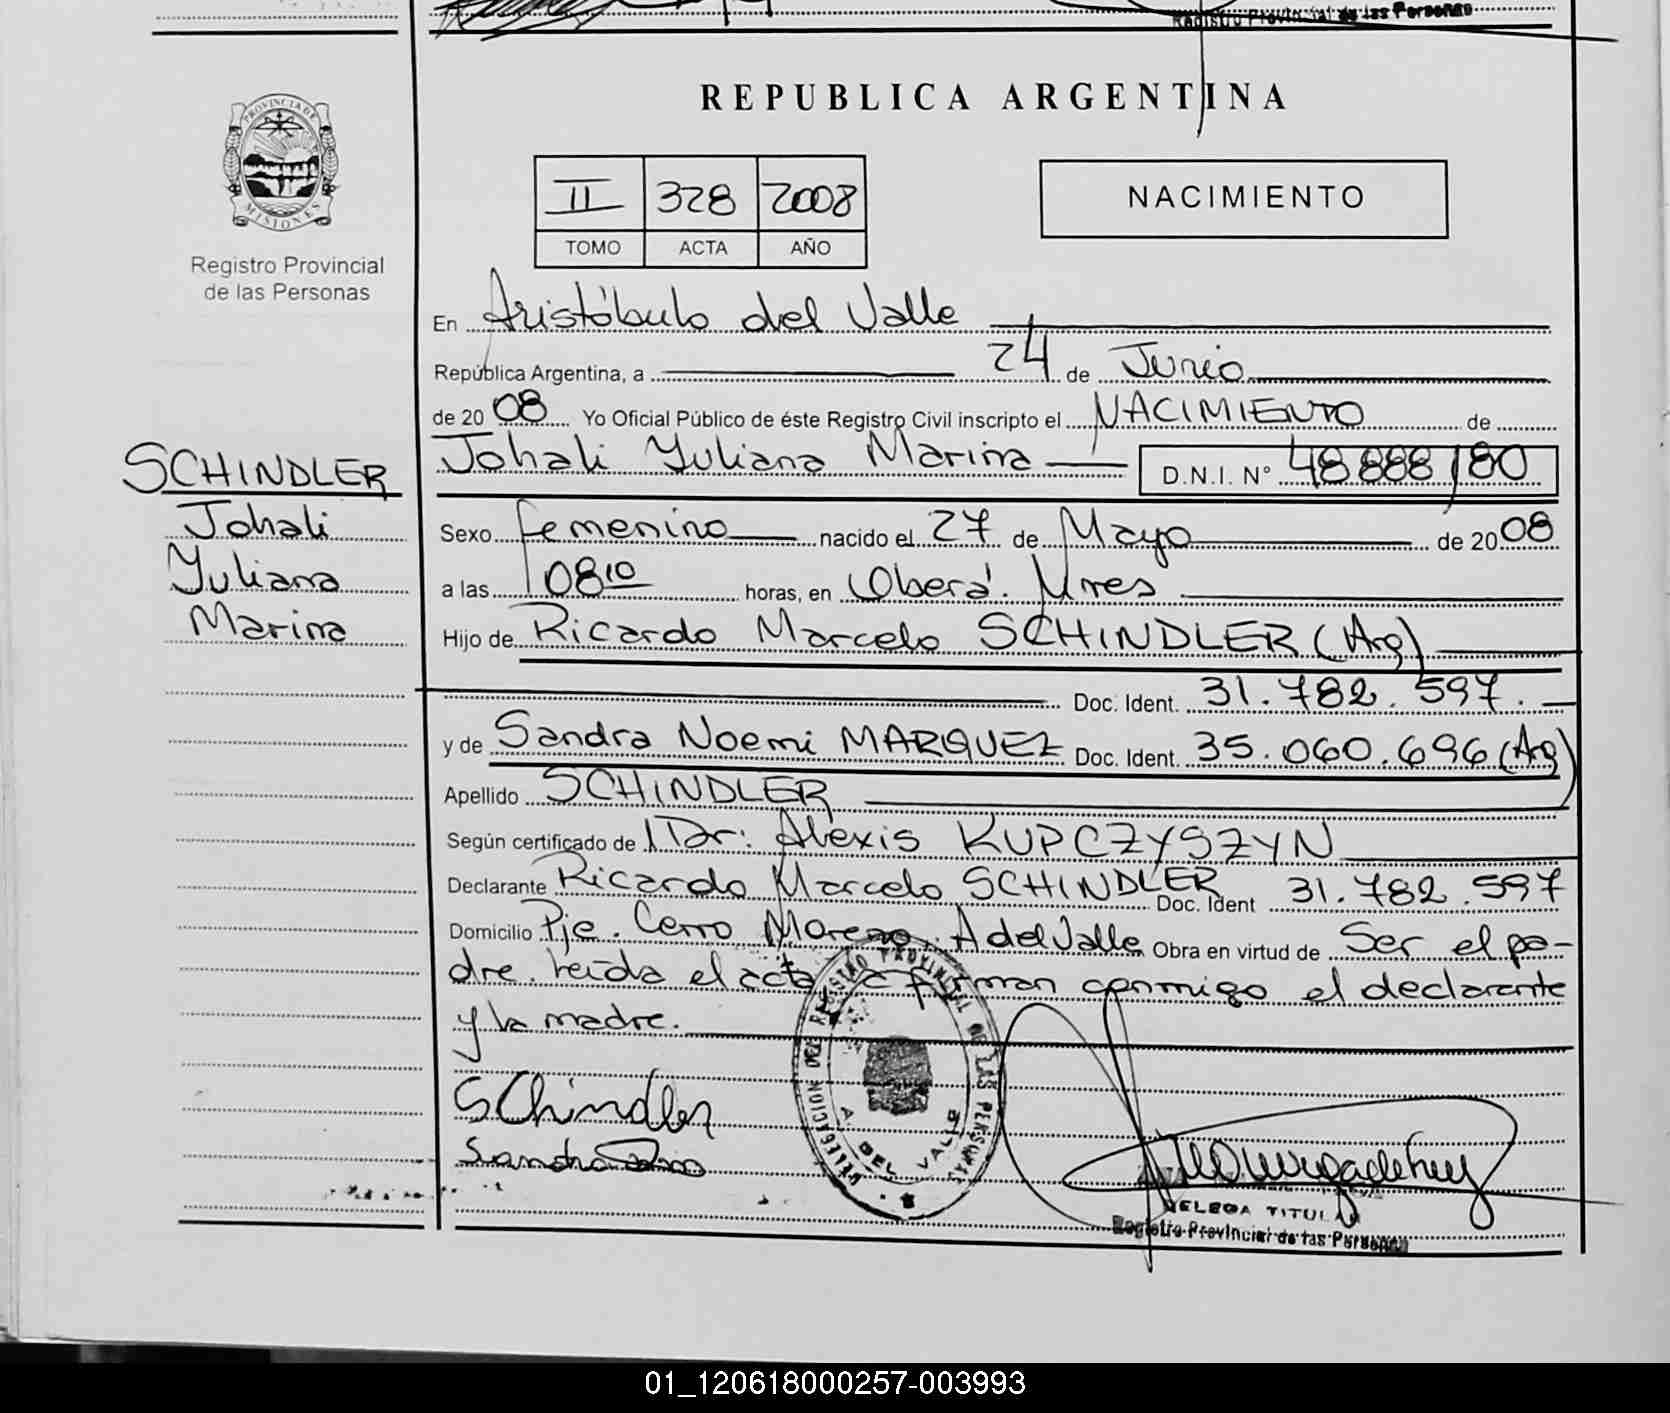 Registro Provincial de las Personas
PROVINCIA DE
MISIONES
Registro Provincial
de las Personas
REPUBLICA ARGENTINA
II 328 2008
TOMO ACTA AÑO
NACIMIENTO
En Aristóbulo del Valle
República Argentina, a 24 de Junio
de 20 08 Yo Oficial Público de éste Registro Civil inscripto el NACIMIENTO de
SCHINDLER
Johali
Yuliana
Marina
Johali Yuliana Marina D.N.I. Nº 48888180
Sexo femenino nacido el 27 de Mayo de 20 08
a las 08 10 horas, en Oberá. Mnes
Hijo de Ricardo Marcelo SCHINDLER (Arg)
Doc. Ident. 31.782.597.
y de Sandra Noemi MARQUEZ Doc. Ident. 35.060.696 (Arg)
Apellido SCHINDLER
Según certificado de Dr: Alexis KUPCZYSZYN
Declarante Ricardo Marcelo SCHINDLER Doc. Ident 31.782.597
Domicilio Pje. Cerro Moreno. A del Valle Obra en virtud de Ser el pa-
dre. Leída el acta firman conmigo el declarante
y la madre.
SChindler
Sandra
DELEGACION DEL REGISTRO PROVINCIAL DE LAS PERSONAS
A. DEL VALLE
DELEGA TITULAR
Registro Provincial de las Personas
01_120618000257-003993